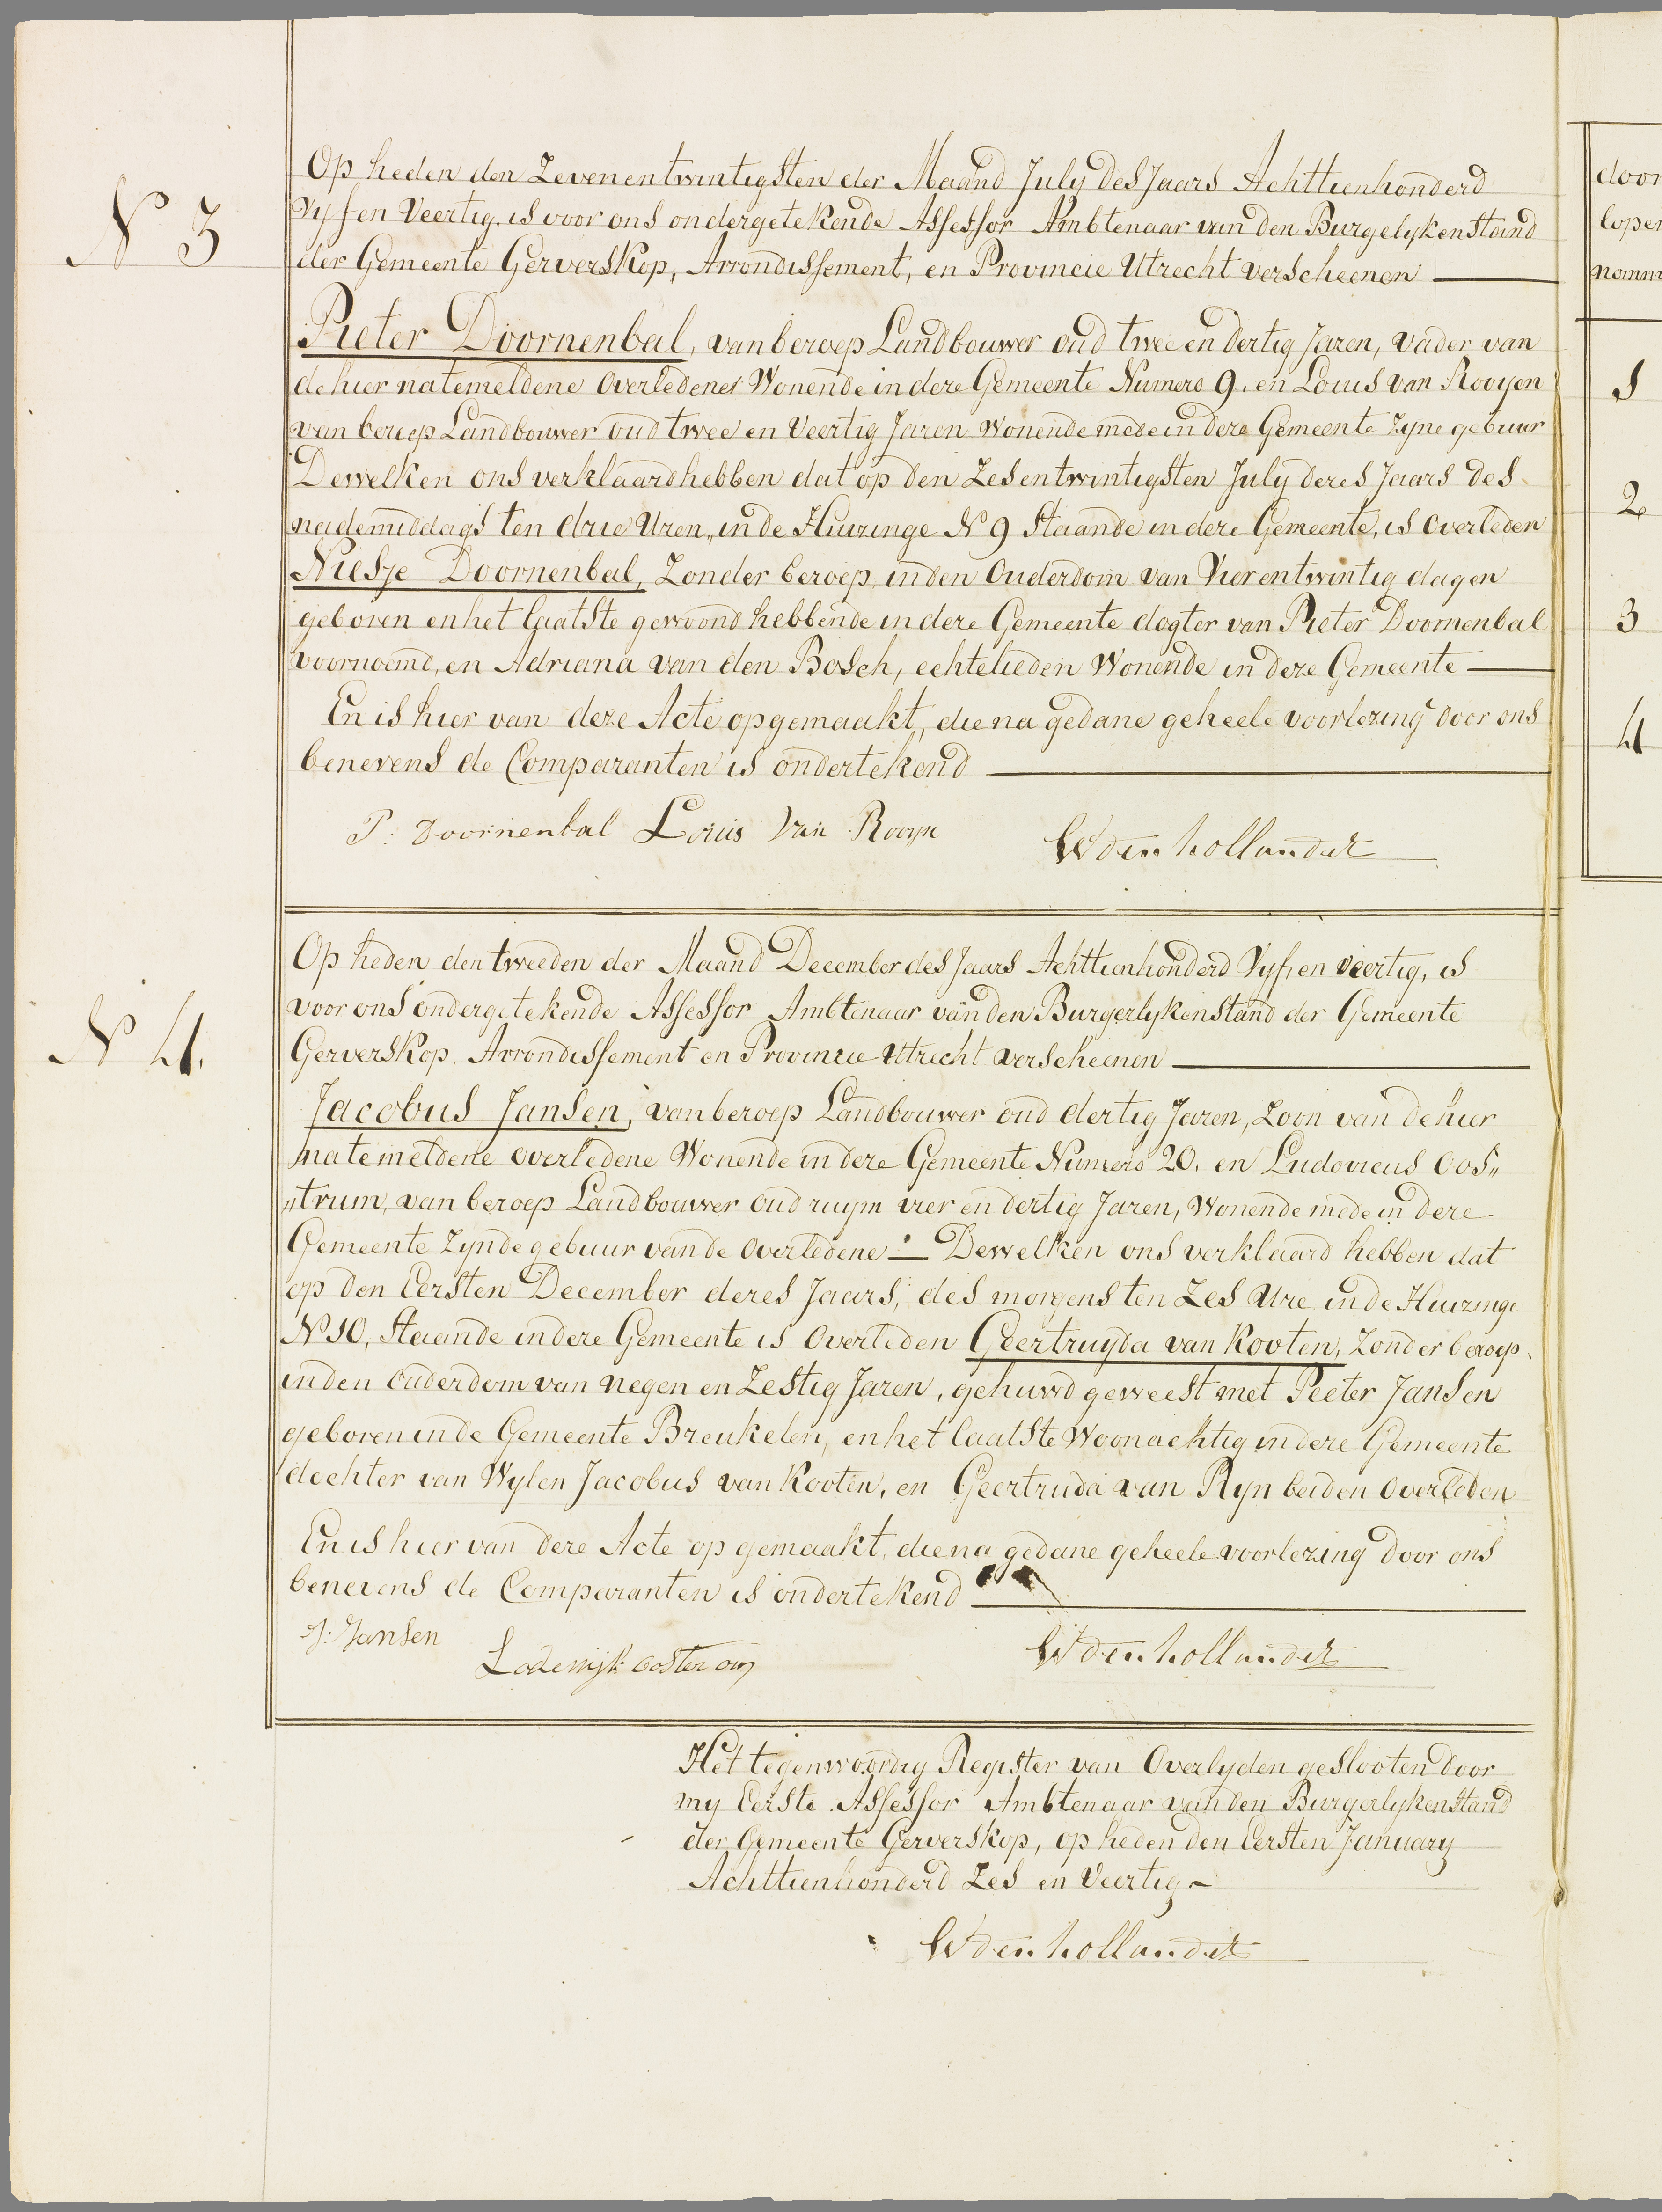 N 3
Op heden den Zevenentwintigsten der Maand July des Jaars Achttienhonderd
Vyf en Veertig, is voor ons ondergetekende Assessor Ambtenaar van den Burgelyken Stand
der Gemeente Gerverskop, Arrondissement, en Provincie Utrecht verscheenen
Pieter Doornenbal, van beroep Landbouwer oud twee en dertig Jaren, vader van
de hier natemeldene Overledenes Wonende in deze Gemeente Numero 9. en Louis van Rooyen
van beroep Landbouwer oud twee en Veertig Jaren Wonende mede in deze Gemeente Zyne gebuur
Dewelken ons verklaard hebben dat op den Zesentwintigsten July dezes Jaars des
nademiddags ten drie Uren, in de Huizinge N 9 Staande in deze Gemeente, is Overleden
Niesje Doornenbal, Zonder beroep, in den Ouderdom van Vierentwintig dagen
geboren en het laatste gewoond hebbende in deze Gemeente dogter van Pieter Doornenbal
voornoemd, en Adriana van den Bosch, echtelieden Wonende in deze Gemeente
En is hier van deze Acte opgemaakt, die na gedane geheele voorlezing door ons
benevens de Comparanten is ondertekend
P: Doornenbal Louis Van Rooyn
W den hollander
N 4.
Op heden den tweeden der Maand December des Jaars Achttienhonderd Vyf en veertig, is
voor ons ondergetekende Assessor Ambtenaar van den Burgerlyken Stand der Gemeente
Gerverskop, Arrondissement en Provincie Utrecht verscheenen
Jacobus Jansen, van beroep Landbouwer oud dertig Jaren, Zoon van de hier
natemeldene overledene Wonende in deze Gemeente Numero 20. en Ludovicus Oos„
„trum, van beroep Landbouwer oud ruym vier en dertig Jaren, Wonende mede in deze
Gemeente Zynde gebuur van de Overledene :— Dewelken ons verklaard hebben dat
op den Eersten December dezes Jaars, des morgens ten Zes Ure in de Huizinge
N 10, Staande in deze Gemeente is Overleden Geertruyda van Kooten, Zonder beroep.
in den Ouderdom van negen en Zestig Jaren, gehuwd geweest met Peeter Jansen
geboren in de Gemeente Breukelen, en het laatste Woonachtig in deze Gemeente
dochter van Wylen Jacobus van Kooten, en Geertruda van Ryn beiden Overleden
En is hier van deze Acte op gemaakt, die na gedane geheele voorlezing door ons
benevens de Comparanten is ondertekend
J: Jansen
Lodewijk oosterom
W den hollander
Het tegenwoordig Register van Overlyden geslooten door
my Eerste Assessor Ambtenaar van den Burgerlyken Stand
der Gemeente Gerverskop, op heden den Eersten January
Achttienhonderd Zes en Veertig -
W den hollander
door
lopen
namm
1
2
3
4